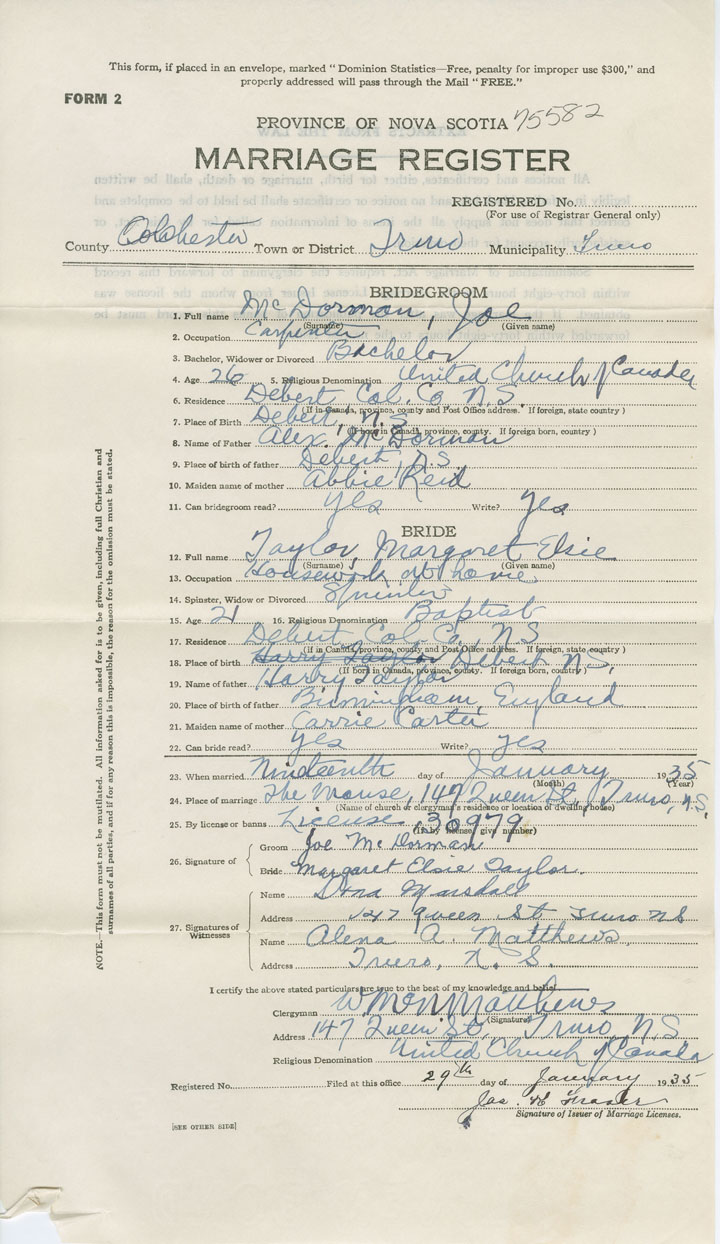 This form, if placed in an envelope, marked " Dominion Statistics—Free, penalty for improper use $300," and
properly addressed will pass through the Mail " FREE."
FORM 2
PROVINCE OF NOVA SCOTIA 75582
MARRIAGE REGISTER
REGISTERED No.
(For use of Registrar General only)
County Colchester Town or District Truro Municipality Truro
BRIDEGROOM
1. Full name McDorman, Joe
(Surname) (Given name)
2. Occupation Carpenter
3. Bachelor, Widower or Divorced Bachelor
4. Age 26 5. Religious Denomination United Church of Canada
6. Residence Debert Col. Co N.S
(If in Canada, province, county and Post Office address. If foreign, state country )
7. Place of Birth Debert, N.S
(If born in Canada, province, county. If foreign born, country )
8. Name of Father Alex. McDorman
9. Place of birth of father Debert, N.S
10. Maiden name of mother Abbie Reid
11. Can bridegroom read? Yes Write? Yes
BRIDE
12. Full name Taylor, Margaret Elsie
(Surname) (Given name)
13. Occupation Housework at home
14. Spinster, Widow or Divorced Spinster
15. Age 21 16. Religious Denomination Baptist
17. Residence Debert Col. Co, N.S
(If in Canada, province, county and Post Office address. If foreign, state country )
18. Place of birth Harry Taylor Debert N.S,
(If born in Canada, province, county. If foreign born, country )
19. Name of father Harry Taylor
20. Place of birth of father Birmingham, England
21. Maiden name of mother Carrie Carter
22. Can bride read? Yes Write? Yes
23. When married Nineteenth day of January 1935
(Month) (Year)
24. Place of marriage The Manse, 147 Queen St, Truro, N.S,
(Name of church or clergyman's residence or location of dwelling house)
25. By license or banns License 30979
(If by license, give number)
26. Signature of
Groom Joe McDorman
Bride Margaret Elsie Taylor.
27. Signatures of Witnesses
Name Marshall
Address 147 Queen St Truro NS
Name Alena A. Matthews,
Address Truro, N.S.
I certify the above stated particulars are true to the best of my knowledge and belief.
Clergyman Matthews
(Signature)
Address 147 Queen St, Truro N.S
Religious Denomination United Church of Canada
Registered No. Filed at this office 29th day of January 1935
Jas. Fraser
Signature of Issuer of Marriage Licenses.
[SEE OTHER SIDE]
NOTE.—This form must not be mutilated. All information asked for is to be given, including full Christian and
surnames of all parties, and if for any reason this is impossible, the reason for the omission must be stated.